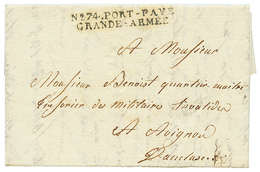 No. 74. PORT-PAYÉ
GRANDE-ARMÉE
A Monsieur
Monsieur Benoist quartier maitre
tresorier du militaire Invalides
A Avignon
Vaucluse